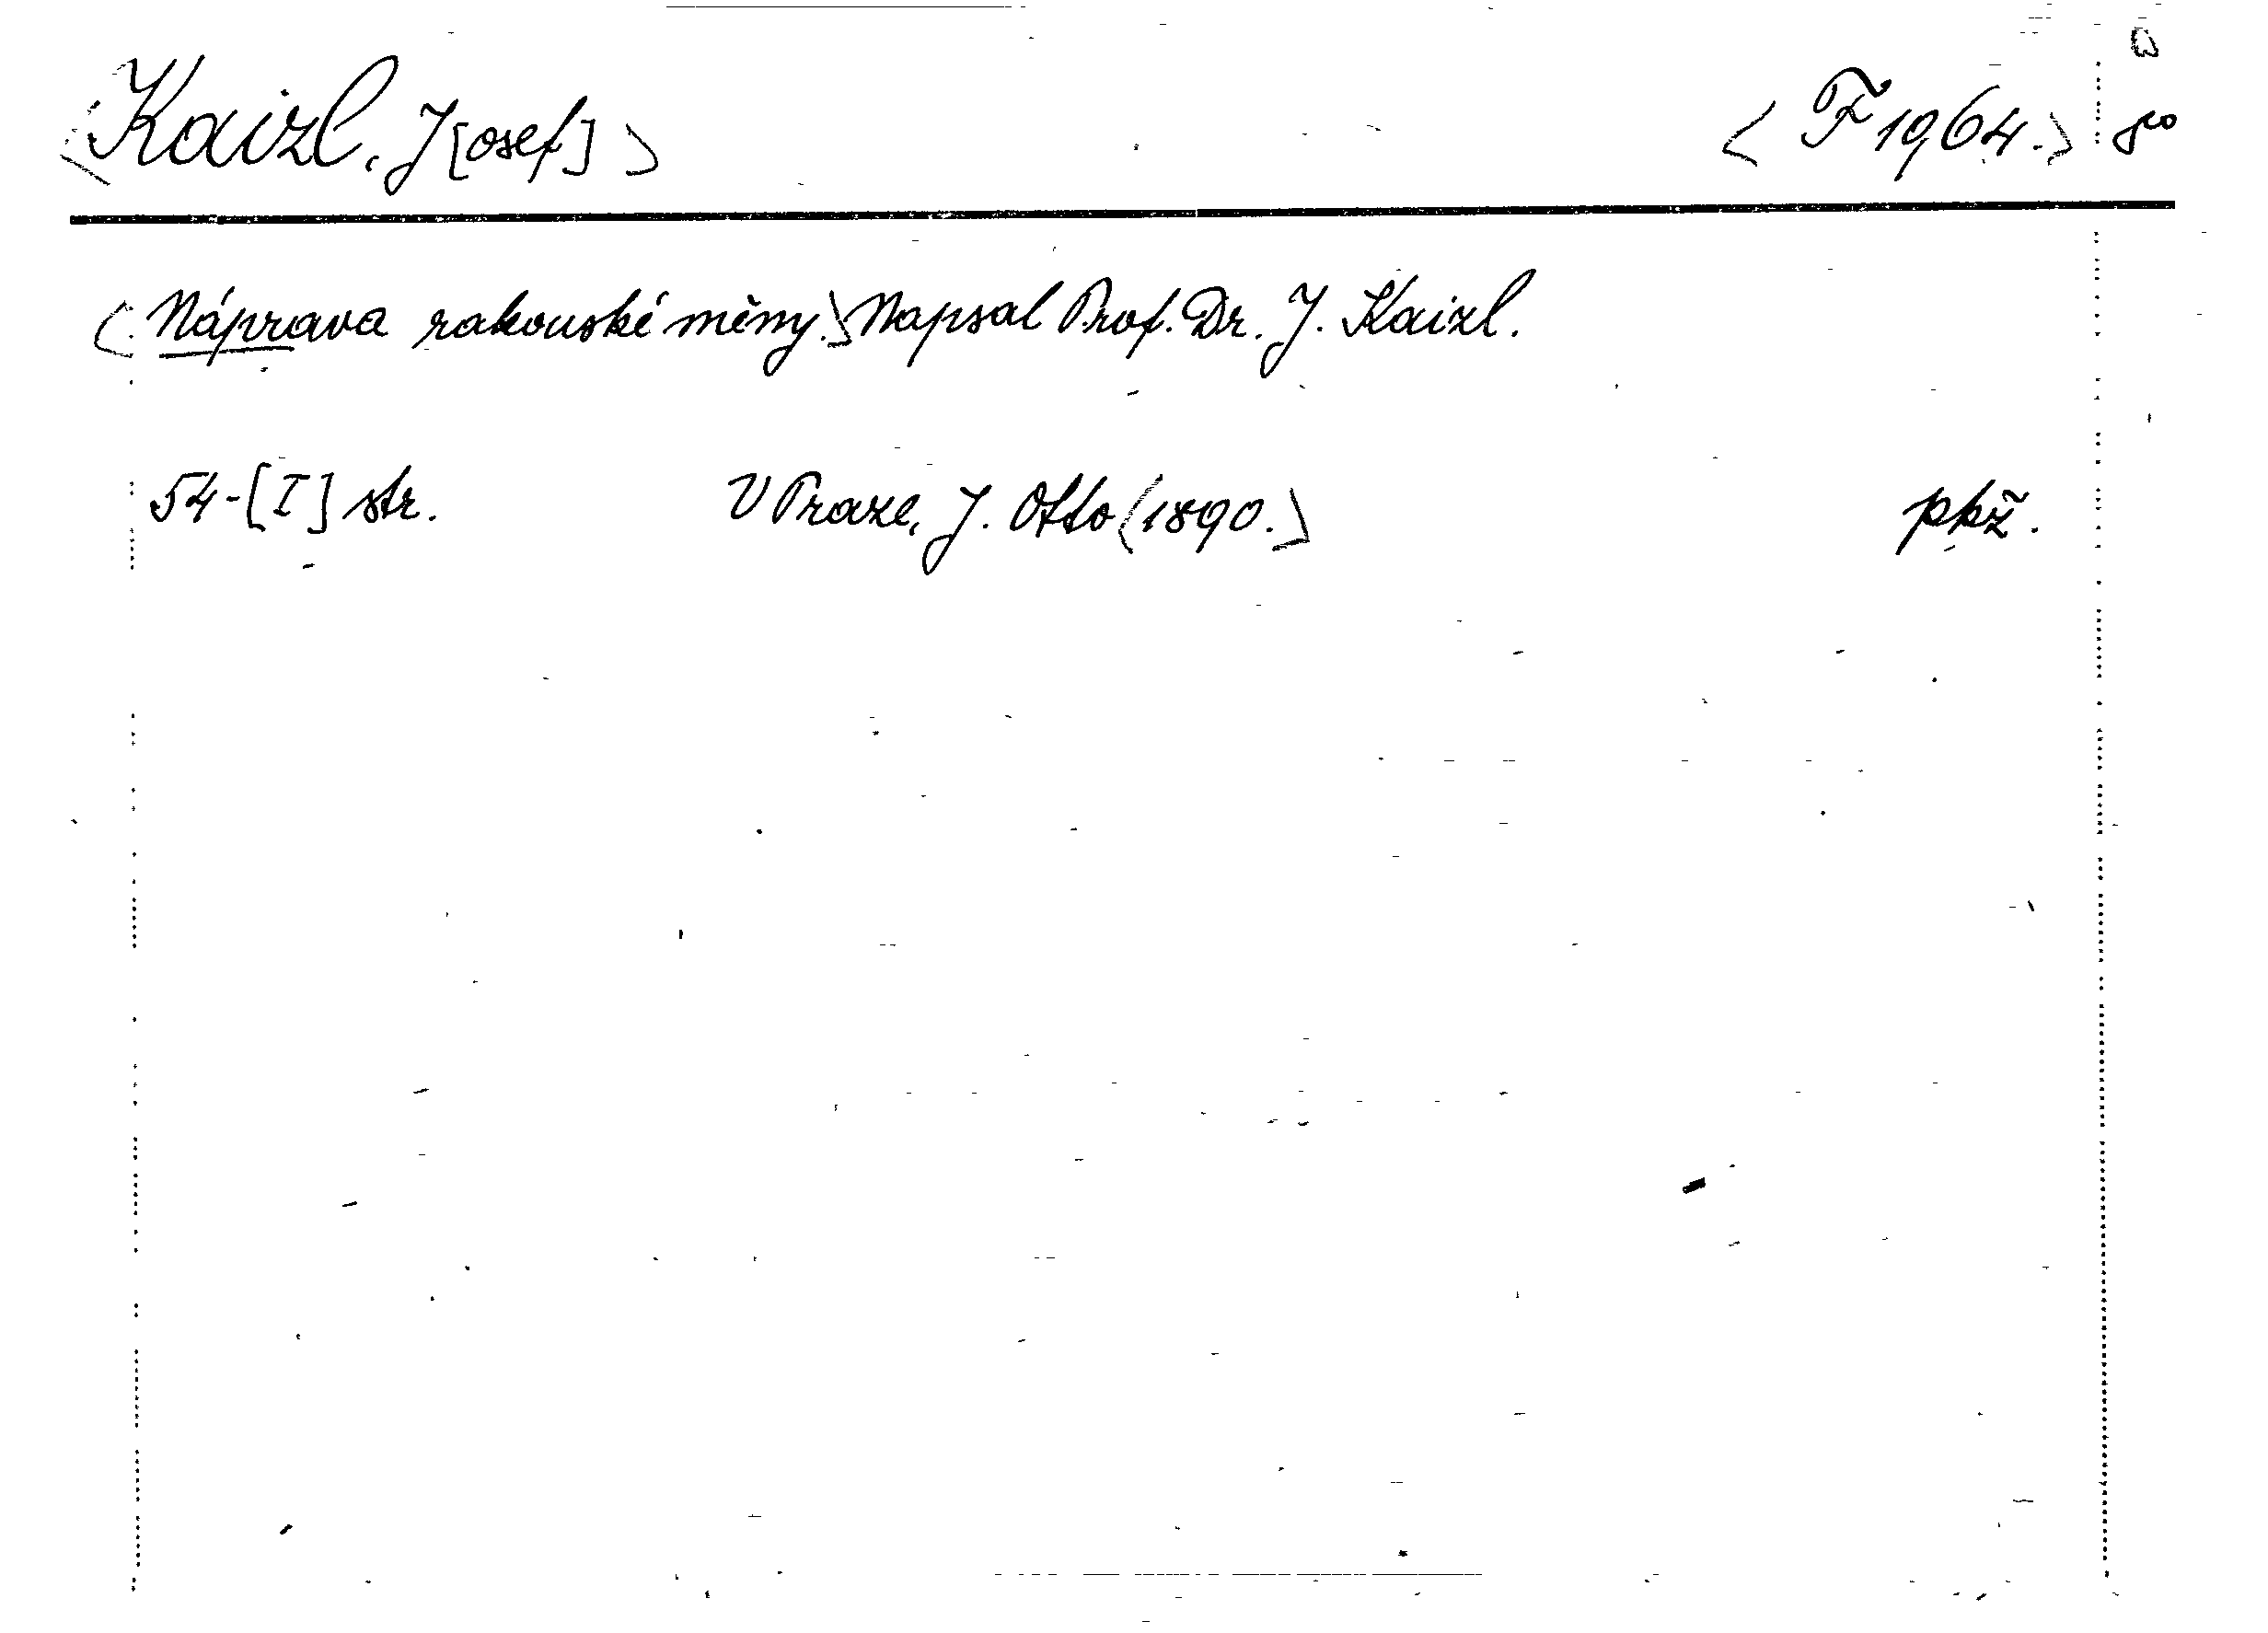 <Kaizl, J[osef]> <F 1964.> 8°
<Náprava rakouské měny.> Napsal Prof. Dr. J. Kaizl.
54-[I] str. V Praze, J. Otto <1890.> pkž.